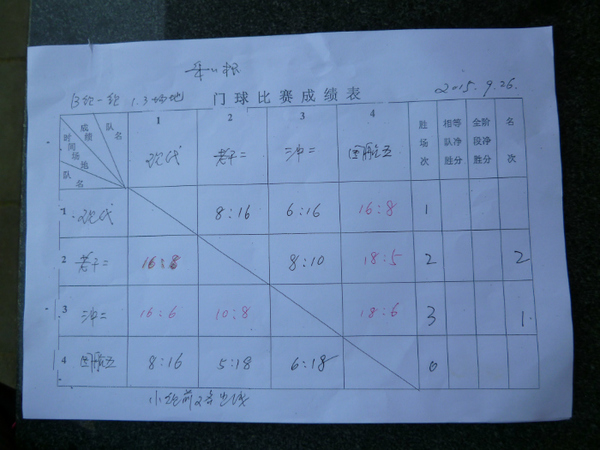 B组一组 1.3场地 门球比赛成绩表 2015.9.26.
成绩 队名 时间 场地 队名
1 2 3 4
现代 老干二 二冲二
胜场次 相等队净胜分 全阶段净胜分 名次
1 现代 8:16 6:16 16:8 1
2 老干二 16:8 8:10 18:5 2 2
3 二冲二 16:6 10:8 18:6 3 1
4 8:16 5:18 6:18 0
小组前2名出线